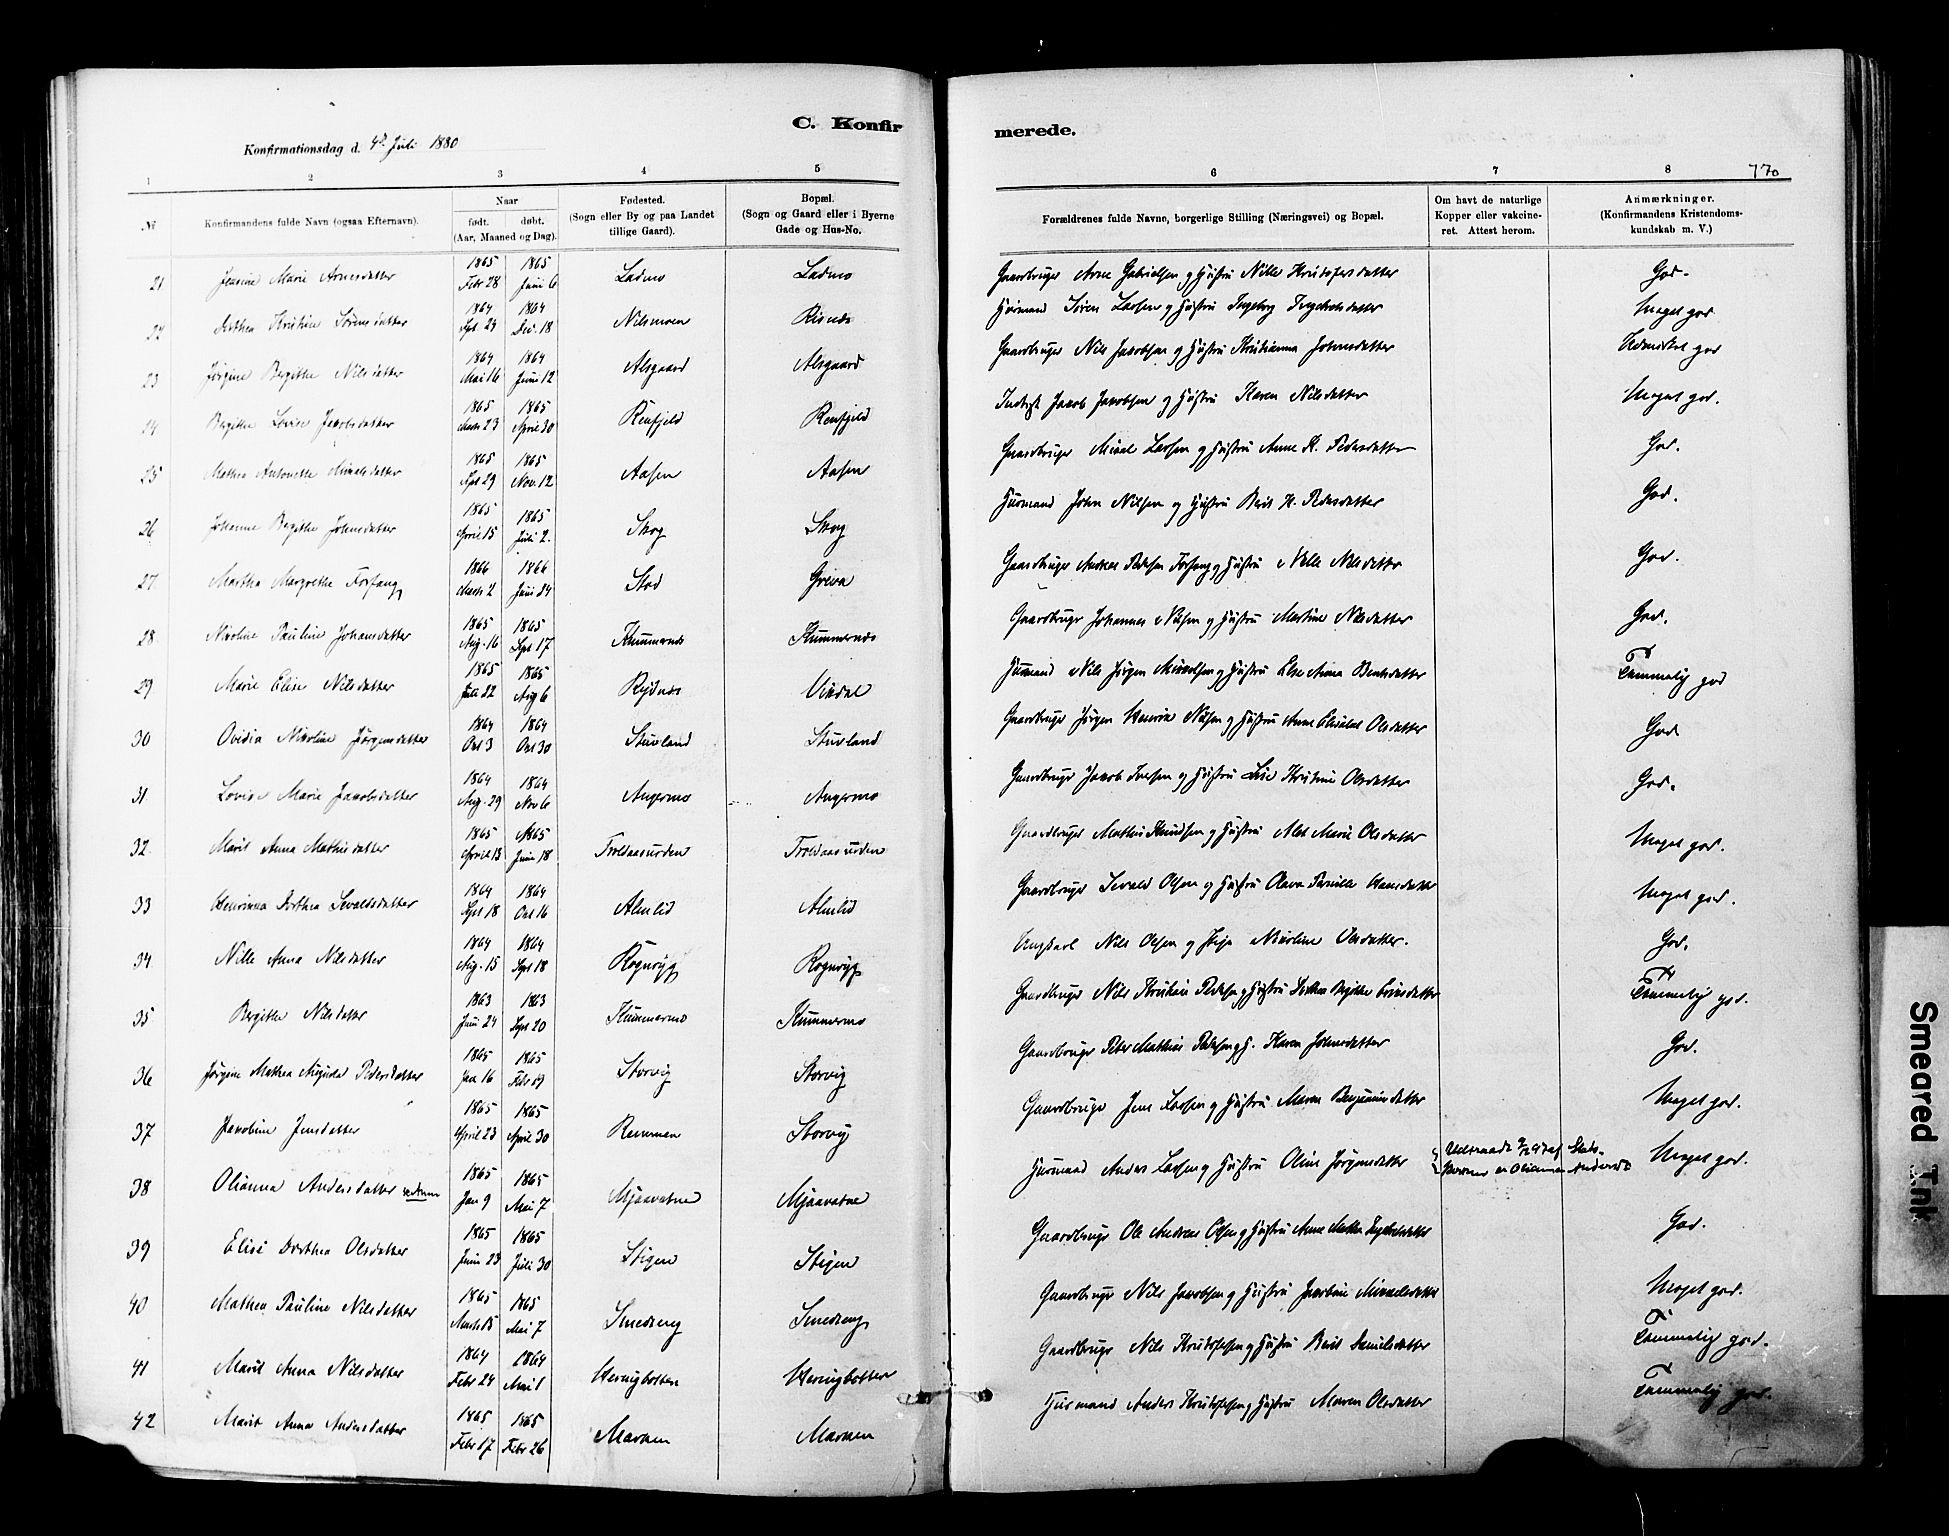 C. Konfirmerede.
Konfirmationsdag d. 4de Juli 1880
770
1 2 3 4 5 6 7 8
№ Konfirmandens fulde Navn (ogsaa Efternavn). Naar født. døbt. (Aar, Maaned og Dag). Fødested. (Sogn eller By og paa Landet tillige Gaard). Bopæl. (Sogn og Gaard eller i Byerne Gade og Hus-No. Forældrenes fulde Navne, borgerlige Stilling (Næringsvei) og Bopæl. Om havt de naturlige Kopper eller vakcineret. Attest herom. Anmærkninger. (Konfirmandens Kristendomskundskab m. V.)
21 Marie Arnesdatter 1865 Febr 28 1865 Juni 6 Ladmo Ladmo Gaardbruger Arne Gabrielsen og Hustru Nille Kristofersdatter God.
22 Dorthea Kristine Sørensdatter 1864 Spt 29 1864 Dec. 18 Nilsmoen Risnes Husmand Søren Larsen og Hustru Ingeborg Ingebrigtsdatter Meget god
23 Jørgine Bergitte Nilsdatter 1864 Mai 16 1864 Juni 12 Alsgaard Alsgaard Gaardbruger Nils Jacobsen og Hustru Kristianna Johnsdatter Udmerket god
24 Bergitte Lovise Jacobsdatter 1865 Marts 23 1865 April 30 Renfjeld Renfjeld Inderst Jacob Jacobsen og Hustru Karen Nilsdatter Meget god.
25 Mathea Antonette Mikalsdatter 1865 Spt 29 1865 Nov. 12 Aasen Aasen Gaardbruger Mikal Larsen og Hustru Anne K. Pedersdatter God.
26 Johanna Bergitte Johnsdatter 1865 April 15 1865 Juli 2. Skog Skog Husmand John Nilsen og Hustru Berit H. Pedersdatter God.
27 Martha Margrethe Forfang 1866 Marts 2 1866 Juni 24 Stod Greiva Gaardbruger Andreas Pedersen Forfang og Hustru Nille Nilsdatter God.
28 Nicoline Pauline Johansdatter 1865 Aug. 16 1865 Spt 17 Kummernes Kummernes Gaardbruger Johannes Nilsen og Hustru Martine Nilsdatter God.
29 Marie Elise Nilsdatter 1865 Juli 22 1865 Aug 6 Rydnes Vikdal Husmand Nils Jørgen Mikkelsen og Hustru Else Anna Bentsdatter Temmelig god
30 Ovidia Nicoline Jørgensdatter 1864 Oct 3 1864 Oct 30 Stuvland Stuvland Gaardbruger Jørgen Henrik Nilsen og Hustru Anne Olsdatter God
31 Lovise Marie Jacobsdatter 1864 Aug. 29 1864 Nov 6 Angermo Angermo Gaardbruger Jacob Iversen og Hustru Lise Kristine Olsdatter God.
32 Marit Anna Mathisdatter 1865 April 13 1865 Juni 18 Troldaasurden Troldaasurden Gaardbruger Mathis Knudsen og Hustru Alet Marie Olsdatter Meget god.
33 Henrikka Dorthea Sevaldsdatter 1864 Spt 18 1864 Oct 16 Almlid Almlid Gaardbruger Sevald Olsen og Hustru Olava Pernilla Hansdatter Meget god.
34 Nille Anna Nilsdatter 1864 Aug. 15 1864 Spt 18 Rognryg Rognryg Ungkarl Nils Olsen og Pige Nicoline Olsdatter. God.
35 Bergitte Nilsdatter 1863 Juni 24 1863 Spt 20 Kummermo Kummermo Gaardbruger Nils Kristian Pedersen og Hustru Dorthea Bergitte Temmelig god.
36 Jørgine Mathea Pedersdatter 1865 Jan 16 1865 Febr 19 Storvig Storvig Gaardbruger Peter Mathias Pedersen og H. Karen Johnsdatter God.
37 Jacobine Jensdatter 1865 April 23 1865 April 30 Remmen Storvig Gaardbruger Jens Larsen og Hustru Maren Benjaminsdatter Meget god.
38 Olianna Andersdatter 1865 Jan 9 1865 Mai 7 Mjaavatne Mjaavatne Husmand Anders Larsen og Hustru Oline Jørgensdatter Meget god.
39 Elise Dorthea Olsdatter 1865 Juni 23 1865 Juli 30 Stigen Stigen Gaardbruger Ole Andreas Olsen og Hustru Anne Martha Ingebrigtsdatter God.
40 Mathea Pauline Nilsdatter 1865 Marts 15 1865 Mai 7 Smedseng Smedseng Gaardbruger Nils Jacobsen og Hustru Jacobine Mikkelsdatter Meget god.
41 Marit Anna Nilsdatter 1864 Febr 24 1864 Mai 1 Heringbotten Heringbotten Gaardbruger Nils Kristofersen og Hustru Berit Danielsdatter Temmelig god.
42 Marit Anna Andersdatter 1865 Febr 17 1865 Febr 26 Marken Marken Husmand Anders Kristofersen og Hustru Maren Olsdatter Temmelig god.
Smeared Ink